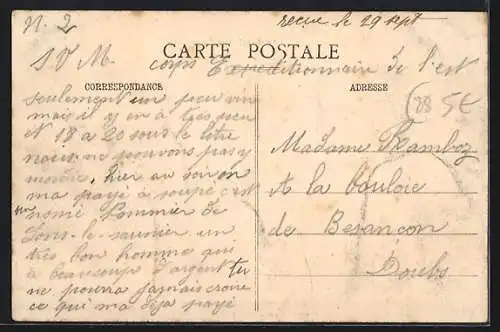 N. 2
recue le 29 sept
CARTE POSTALE
S V M. corps Expeditionnaire de l'est
CORRESPONDANCE
ADRESSE
seulement un peu vin
mais il y en a tres peu
et 18 a 20 sous le litre
nous ne pouvons pas y
mordre, hier au soir on
ma payé à soupé c'est
un nomé Pommier de
Lons-le-saunier un
tres bon homme qui
à beaucoups d'argent tu
ne pourra jamais croire
ce qui ma deja payé
5€
Madame Ramboz
A la bouloie
de Besançon
Doubs